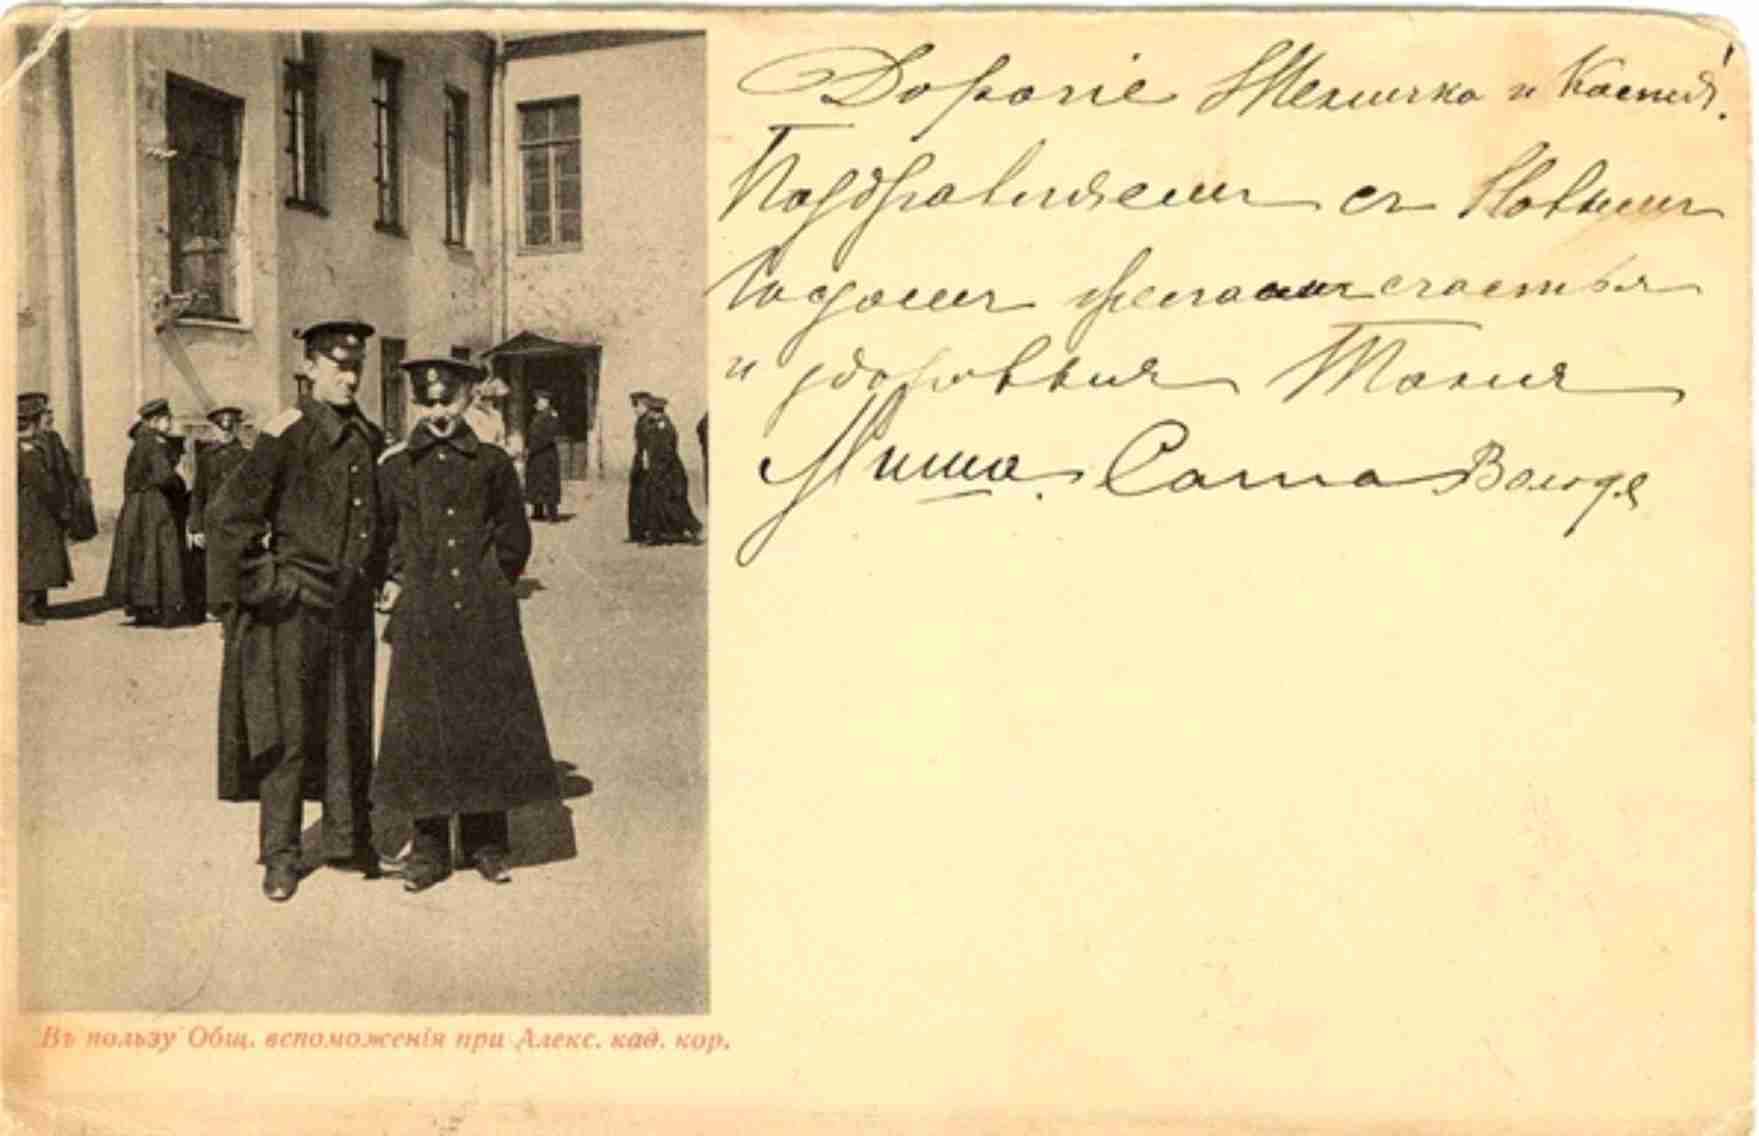 Дорогіе Женичка и Костя!
Поздравляемъ съ Новымъ
Годомъ желаемъ счастья
и здоровья Таня
Миша. Саша Володя
Въ пользу Общ. вспоможенія при Алекс. кад. кор.